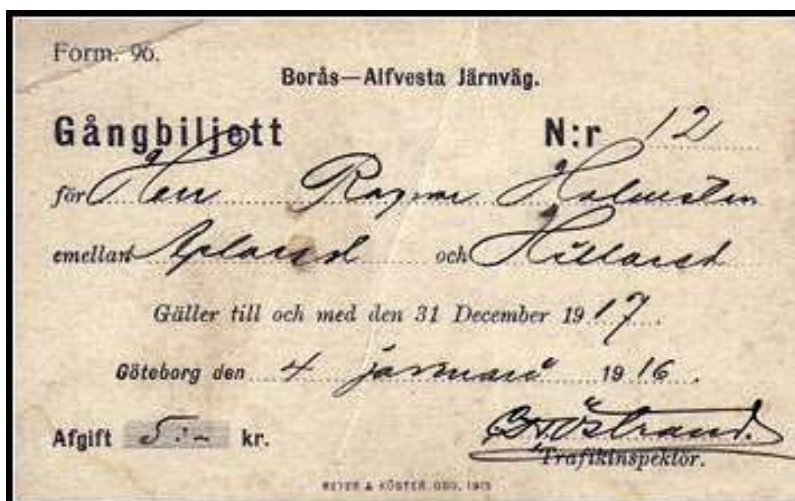 Form. 96.
Borås—Alfvesta Järnväg.
Gångbiljett N:r 12
för Herr Ragnar Holmsten
emellan Apland och Hilland
Gäller till och med den 31 December 1917.
Göteborg den 4 januari 1916.
Afgift 5:- kr.
Östrand.
Trafikinspektör.
MEYER & KÖSTER. GBG. 1915